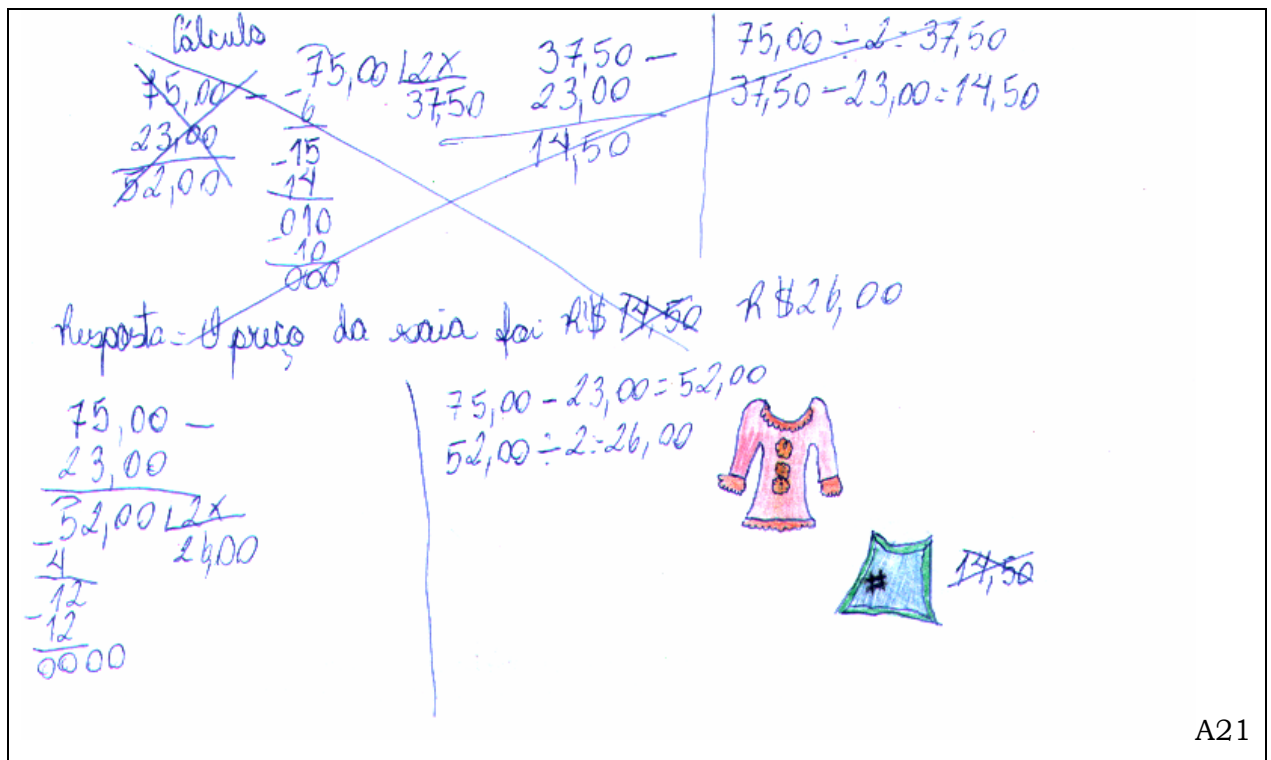 Cálculo
75,00 -
23,00
52,00
- 75,00 2x
6 37,50
-15
14
-010
10
000
37,50 -
23,00
14,50
75,00 ÷ 2 = 37,50
37,50 - 23,00 = 14,50
Resposta = O preço da saia foi R$ 14,50 R$ 26,00
75,00 -
23,00
- 52,00 2x
4 26,00
12
- 12
0000
75,00 - 23,00 = 52,00
52,00 ÷ 2 = 26,00
14,50
A21